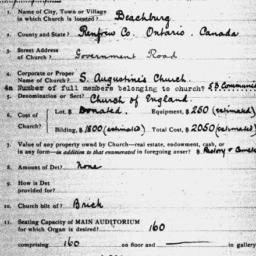 1. Name of City, Town or Village
in which Church is located? Beachburg.
2. County and State? Renfrew Co. Ontario. Canada
3. Street Address
of Church? Government Road
4. Corporate or Proper
Name of Church? S. Augustine's Church.
4a Number of full members belonging to church?
5. Denomination or Sect? Church of England.
6. Cost of
Church?
Lot, $ Donated. Equipment, $ 250 (estimated)
Bilding, $ 1800 (estimated) Total Cost, $ 2050 (estimated)
7. Value of any property owned by Church—real estate, endowment, cash, or
in any form—in addition to that enumerated in foregoing anser? $
8. Amount of Det? None
9. How is Det
provided for?
10. Church bilt of? Brick
11. Seating Capacity of MAIN AUDITORIUM
for which Organ is desired? 160
comprising 160 on floor and — in gallery